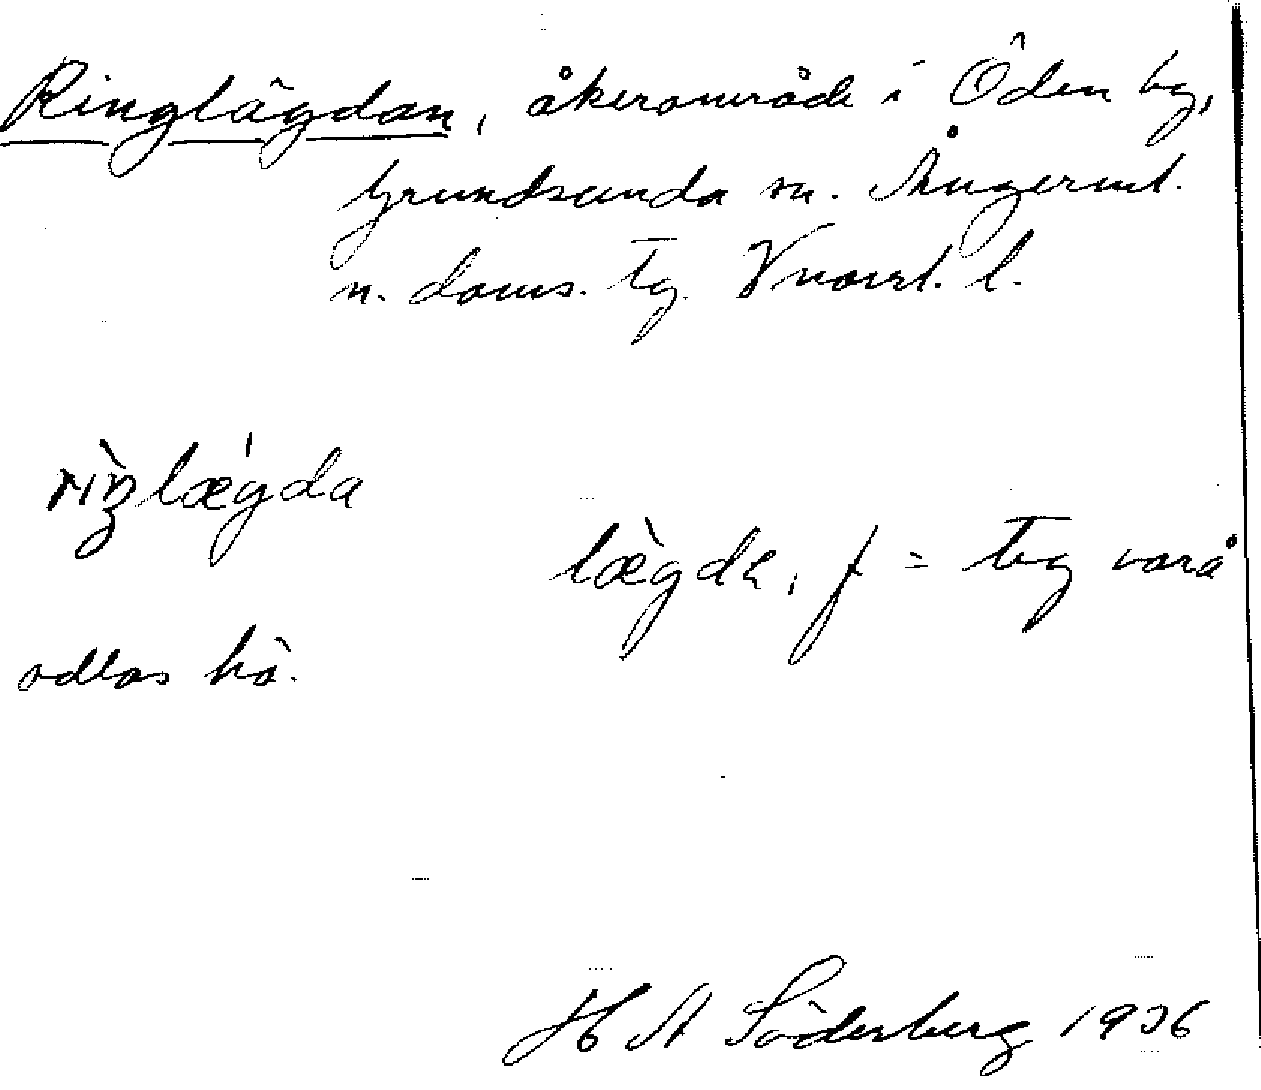 Ringlägdan, åkerområde i Öden by,
Grundsunda sn. Ångerml.
n. doms. tg. Vnorrl. l.
rìŋlǽgda
lægde, f = teg varå
odlas hö.
H A Söderberg 1936